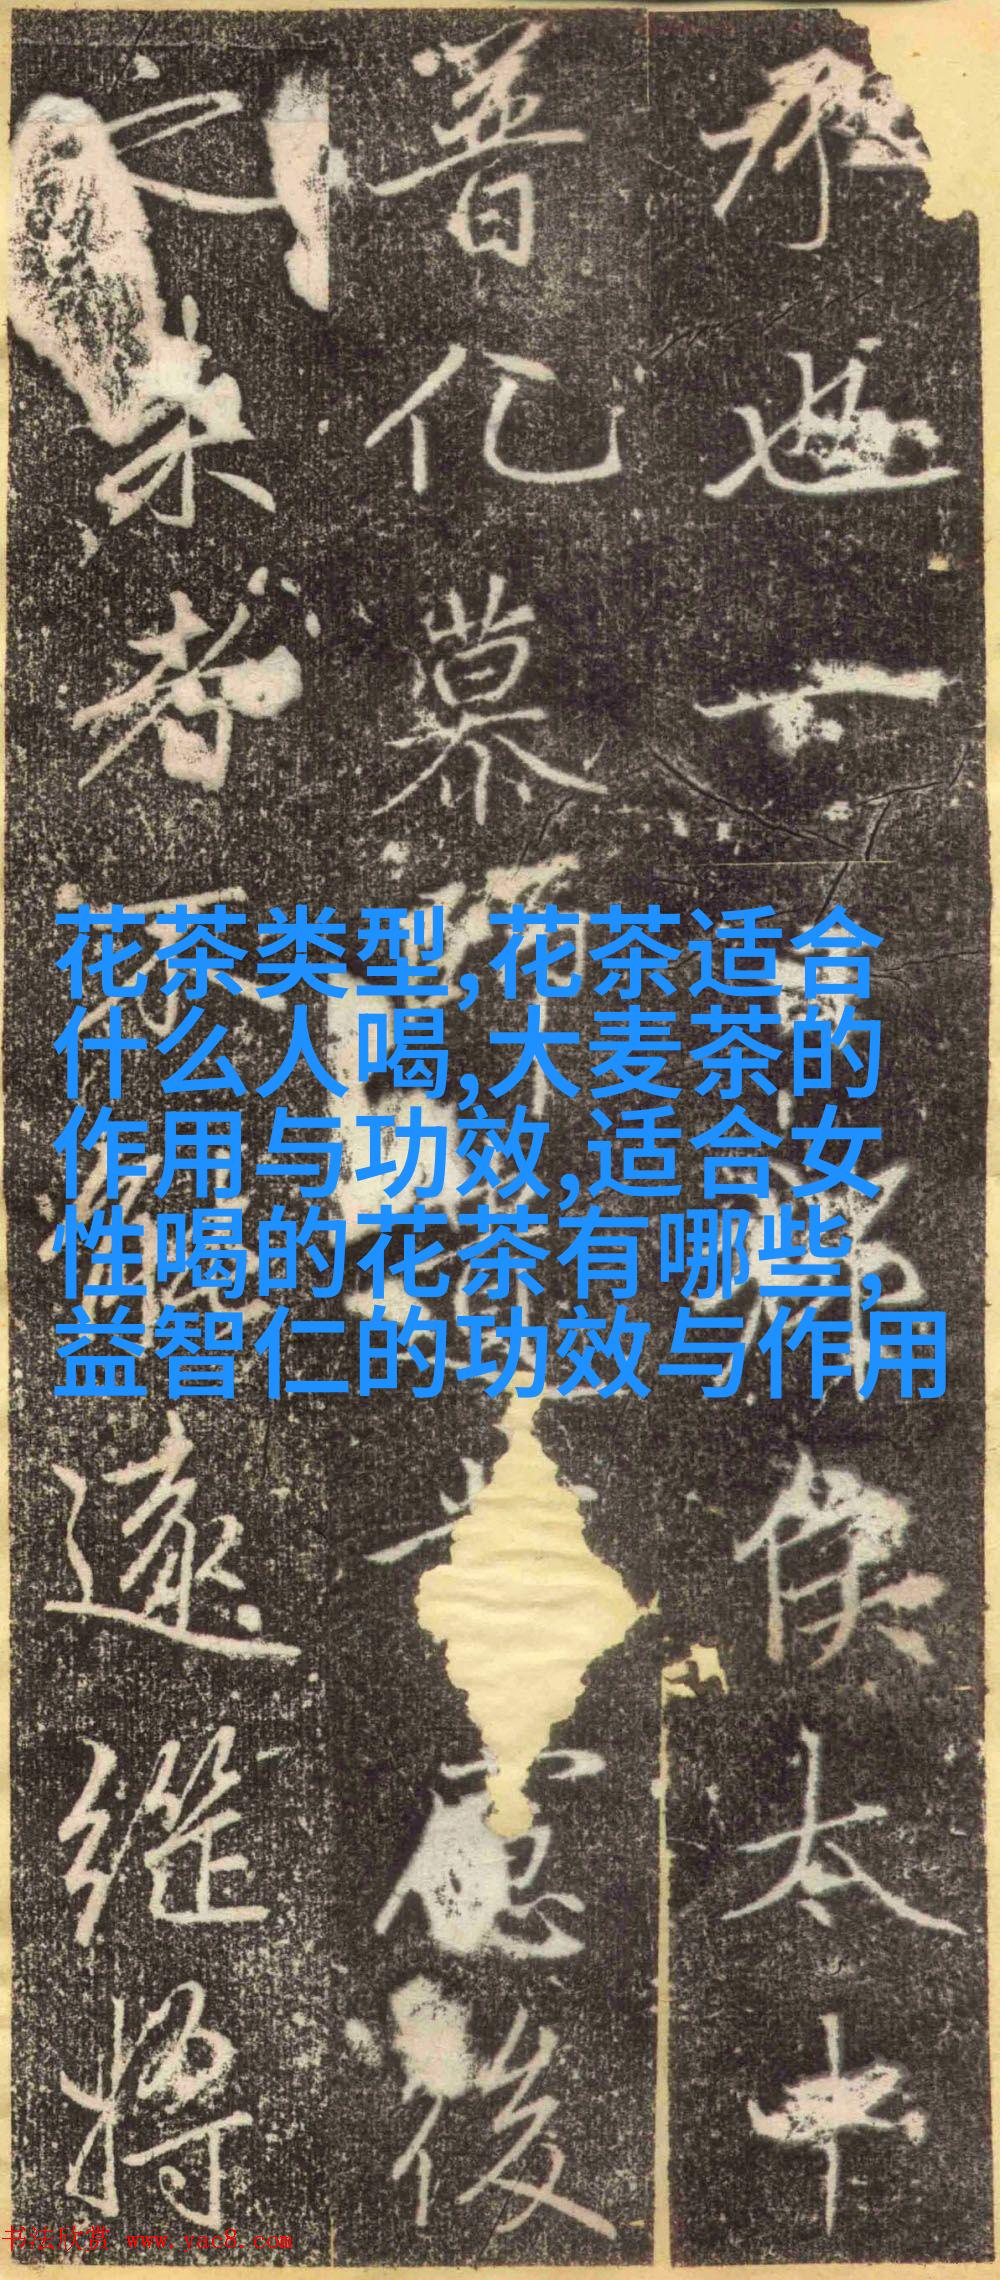 孫也一
侯太中
普化慕
後
未者
遠継将
花茶类型,花茶适合
什么人喝,大麦茶的
作用与功效,适合女
性喝的花茶有哪些,
益智仁的功效与作用
书法欣赏 www.yac8.com